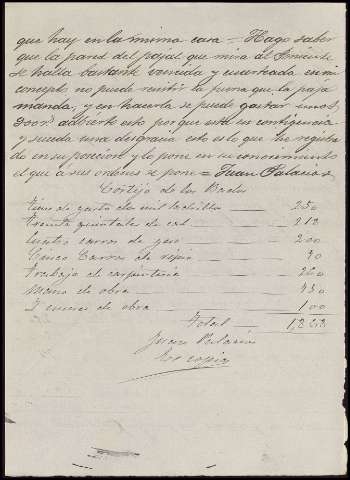 que hay en la misma casa = Hago saber
que la pared del pajar que mira al Poniente
se halla bastante vencida y cuarteada en mi
concepto no puede resistir la fuerza que la paja
manda, y en hacerla se puede gastar unos
2000 r.s adbierto esto por que está en contingencia
y suceda una desgracia esto es lo que he registra
do en su posicion y lo pone en su conocimiento
el que a sus ordenes se pone = Juan Palacios
Cortijo de los
de gasto de mil ladrillos — 250
Treinta quintales de cal — 212
Cuatro carros de yeso — 200
Cinco Carros de ripio — 30
Trabajo de carpinteria — 200
Mano de obra — 430
de obra — 100
Total —
Juan Palacios
Es copia